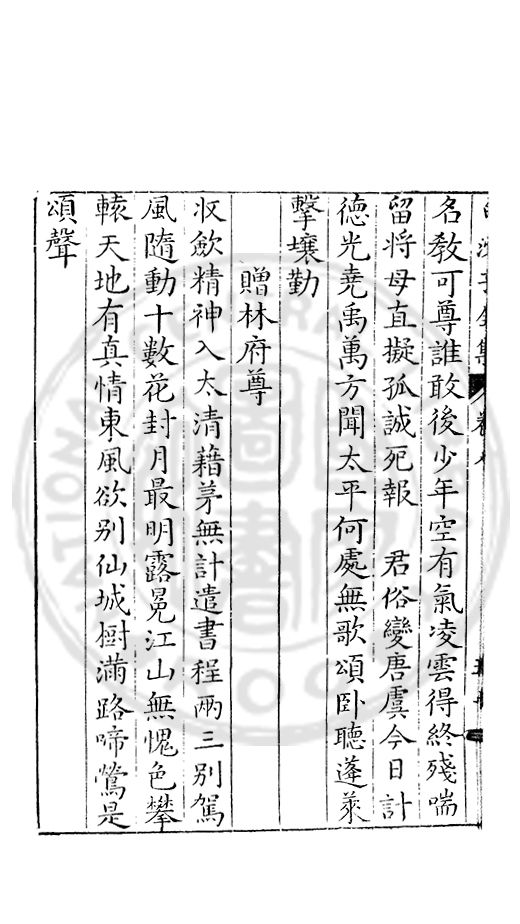 白沙子全集 卷九
名敎可尊誰敢後少年空有氣凌雲得終殘喘
留將母直擬孤誠死報　君俗變唐虞今日計
德光堯禹萬方聞太平何處無歌頌卧聽蓬萊
擊壤勤
贈林府尊
收斂精神入太清藉茅無計遣書程兩三别駕
風隨動十數花封月最明露冕江山無愧色攀
轅天地有真情東風欲别仙城樹滿路啼鶯是
頌聲